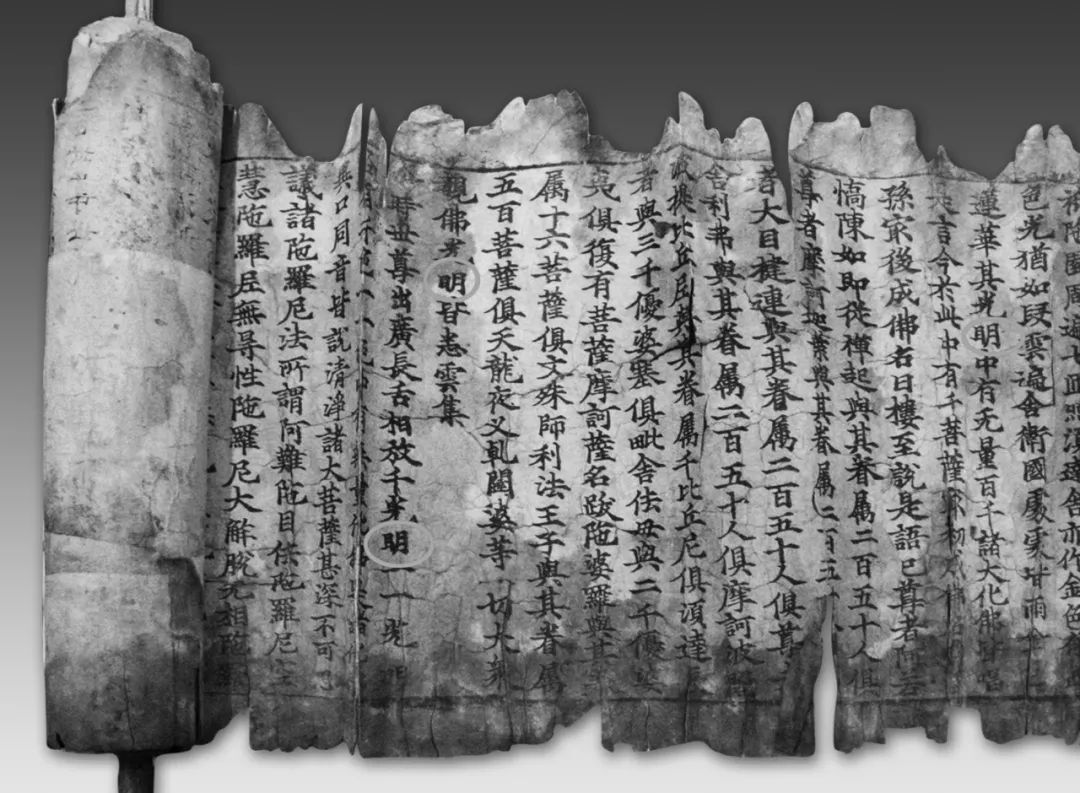 園周遍七匝照須達舍亦作金色
色光猶如段雲遍舍衛國處處皆雨金
蓮華其光明中有无量百千諸大化佛皆唱
是言今於此中有千菩薩㝡初成佛
孫㝡後成佛名曰樓至說是語已尊者阿
憍陳如即從禪起與其眷属二百五十人俱
尊者摩訶迦葉與其眷属二百五
者大目揵連與其眷属二百五十人俱尊
舍利弗與其眷属二百五十人俱摩訶波闍
波提比丘尼與其眷属千比丘尼俱須達
者與三千優婆塞俱毗舍佉母與二千優婆
夷俱復有菩薩摩訶薩名跋陀婆羅與其
属十六菩薩俱文殊師利法王子與其眷属
五百菩薩俱天龍夜叉乹闥婆等一切大衆
覩佛光明皆悉雲集
時世尊出廣長舌相放千光明一一光明
異口同音皆說清淨諸大菩薩甚深不可思
議諸陀羅尼法所謂阿難陀目佉陀羅尼空
慧陀羅尼無㝵性陀羅尼大解脫无相陀羅